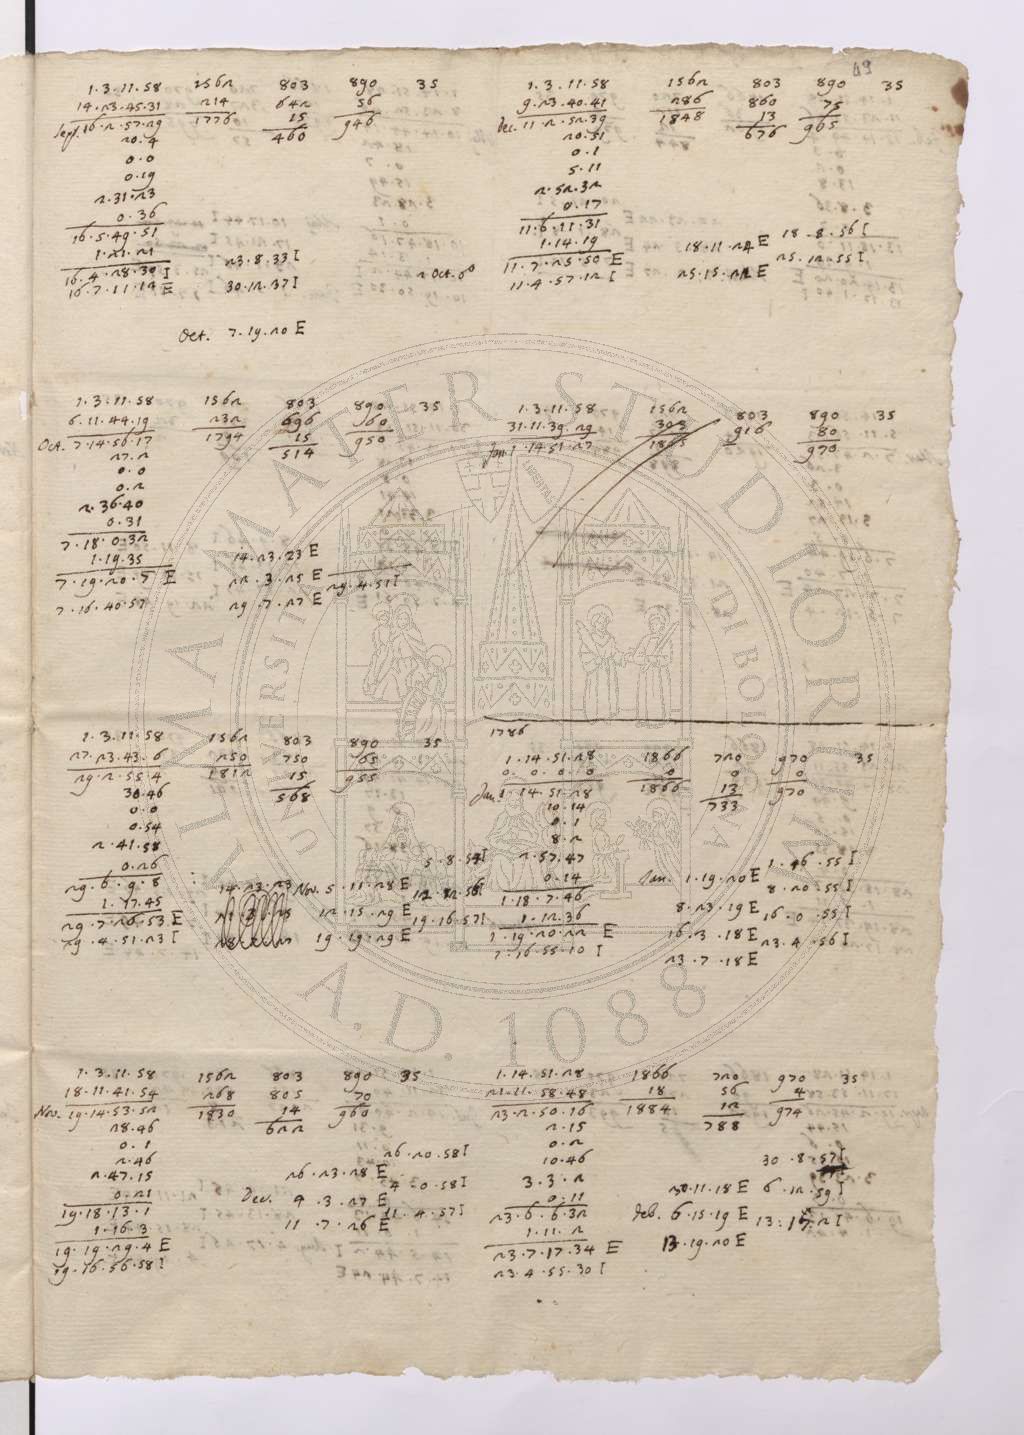 49
1.3.11.58 1562 803 890 35
14.23.45.31 214 642 56
Sept. 16.2.57.29 1776 15 946
20.4 460
0.0
0.19
2.31.23
0.36
16.5.49.51
1.21.21
16.4.28.30 I 23.8.33 I
16.7.11.12 E 30.12.37 I
Oct. 7.19.20 E
1.3.11.58 1562 803 890 35
9.23.40.41 286 860 75
Dec. 11.2.52.39 1848 13 965
20.51 676
0.1
5.11
2.52.32
0.17
11.6.11.31
1.14.19 18.11.24 E 18.8.56 I
11.7.25.50 E 25.15.22 E 25.12.55 I
11.4.57.12 I
1.3.11.58 1562 803 890 35
6.11.44.19 232 696 60
Oct. 7.14.56.17 1794 15 950
27.2 514
0.0
0.2
2.36.40
0.31
7.18.0.32
1.19.35 14.23.23 E
7.19.20.7 E 22.3.25 E 29.4.51 I
7.16.40.57 29.7.27 E
1.3.11.58 1562 803 890 35
31.11.39.29 303 916 80
Jan. 1.14.51.27 1865 970
1.3.11.58 1562 803 890 35
27.23.43.6 250 750 65
29.2.55.4 1812 15 955
30.46 568
0.0
0.54
2.41.58
0.26
29.6.9.8 14.23.23 Nov. 5.11.28 E 5.8.57 I
1.17.45 12.15.29 E 12.12.56 I
29.7.26.53 E 19.19.29 E 19.16.57 I
29.4.51.23 I
1786
1.14.51.28 1866 720 970 35
0.0.0.0 0 0 0
Jan. 1.14.51.28 1866 13 970
10.14 733
0.1
8.2
2.57.47
0.14 Jan. 1.19.20 E 1.46.55 I
1.18.7.46 8.23.19 E 8.20.55 I
1.12.36 16.3.18 E 16.0.55 I
1.19.20.22 E 23.7.18 E 23.4.56 I
1.16.55.10 I
1.3.11.58 1562 803 890 35
18.11.41.54 268 805 70
Nov. 19.14.53.52 1830 14 960
28.46 622
0.1
2.46
2.47.15 26.23.28 E 26.20.58 I
0.21 Dec. 4.3.27 E 4.0.58 I
19.18.13.1 11.7.26 E 11.4.57 I
1.16.3
19.19.29.4 E
19.16.56.58 I
1.14.51.28 1866 720 970 35
21.11.58.48 18 56 4
23.2.50.16 1884 12 974
2.15 788
0.2
10.46
3.3.2 30.11.18 E 30.8.57 I
0.11 Feb. 6.15.19 E 6.12.59 I
23.6.6.32 13.19.20 E 13.17.2 I
1.11.2
23.7.17.34 E
23.4.55.30 I
ALMA MATER STUDIORUM
A.D. 1088